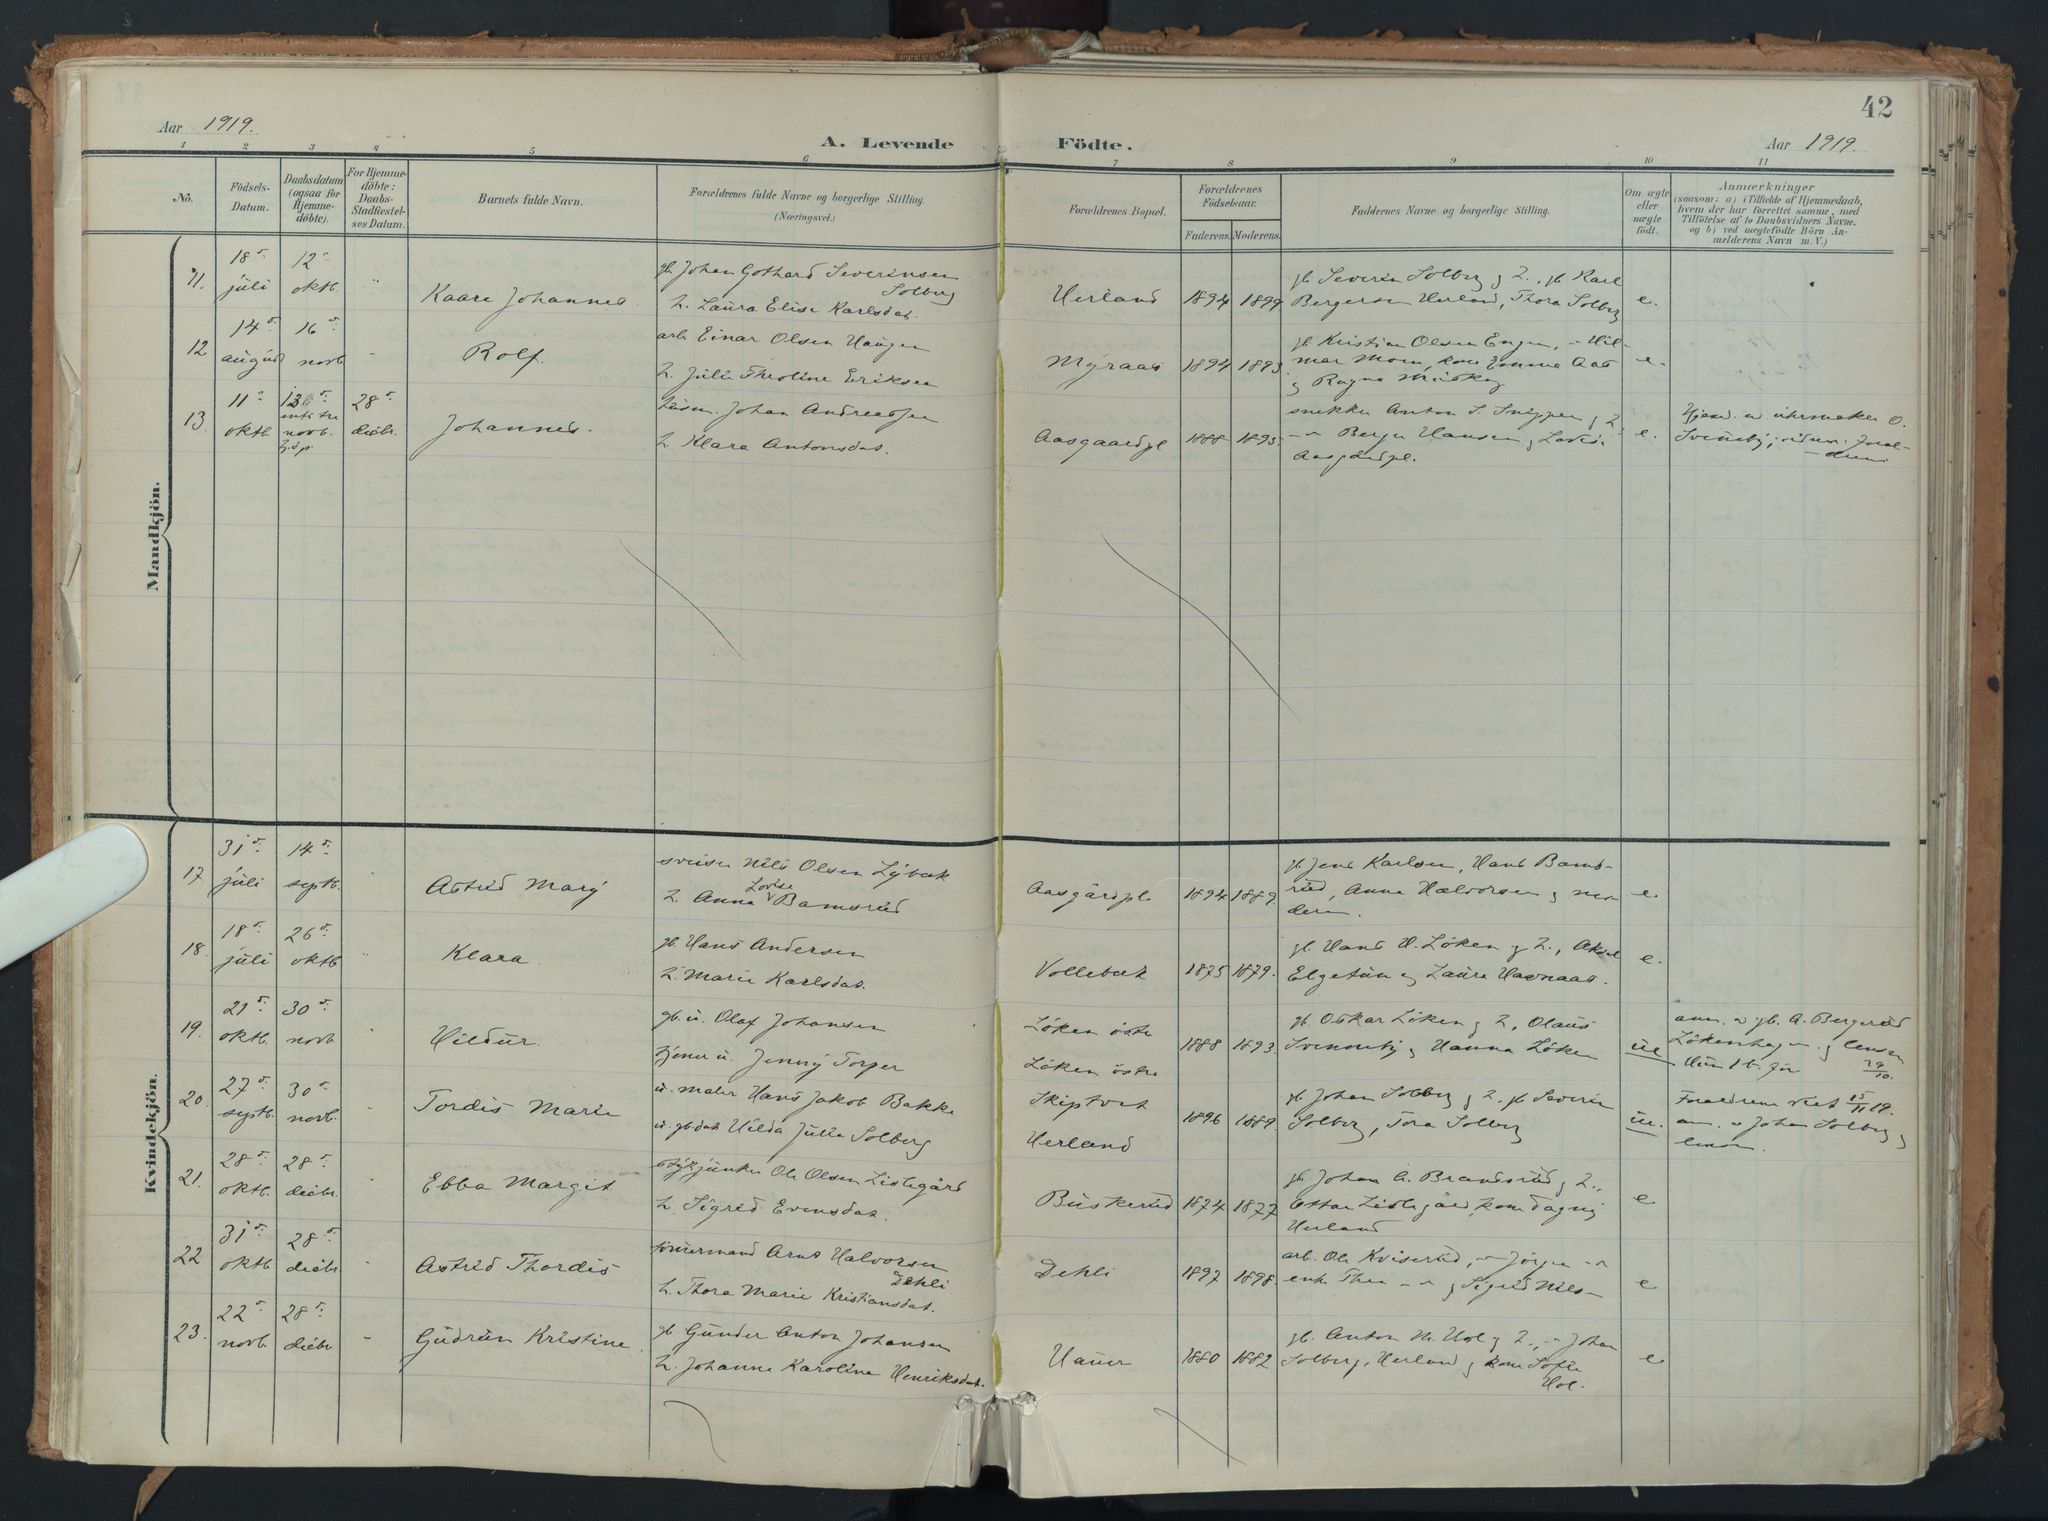 42
Aar 1919.
A. Levende Födte.
Aar 1919.
1 2 3 4 5 6 7 8 9 10 11
No.
Födsels-
Datum.
Daabsdatum
(ogsaa for
Hjemme-
döbte).
For Hjemme-
döbte:
Daabs-
Stadfæstel-
ses Datum.
Barnets fulde Navn.
Forældrenes fulde Navne og borgerlige Stilling.
(Næringsvei.)
Forældrenes Bopæl.
Forældrenes
Födselsaar.
Faderens. Moderens.
Faddernes Navne og borgerlige Stilling.
Om ægte
eller
uægte
födt.
Anmærkninger
(saasom: a) i Tilfælde af Hjemmedaab,
hvem der har forrettet samme, med
Tilföielse af to Daabsvidners Navne,
og b) ved uægtefödte Börn An-
melderens Navn m. V.)
Mandkjön.
11.
18 juli
12 oktb.
Kaare Johannes
gb. Johan Gothard Severinsen
Solberg
h. Laura Elise Karlsdat.
Herland
1894 1899
gb Severin Solberg og h., gb Karl
Bergersen Herland, Thora Solberg
e.
12
14 august
16 novb.
Rolf.
arb. Einar Olsen Haugen
h. Julie Theoline Eriksen
Myraas
1894 1893.
gb. Kristian Olsen Engen,
mar Moen, kone Emma Aas
og Ragna
e.
13.
11 oktb.
novb.
28 decbr.
Johannes.
Johan Andreassen
h. Klara Antonsdat.
Aasgaardpl
1888 1895
snekker Anton S. og h.
Berger Hansen og
Aasgårdpl.
e.
Hjem. av uhrmaker O.
Svenneby;
Kvindekjön.
17.
31 juli
14 septb.
Astrid Mary
sveiser Nils Olsen Lybæk
Lovise
h. Anna Bamsrud
Aasgårdpl.
1894 1889
gb. Jens Karlsen, Hans Bams-
rud, Anna Halvorsen og mo-
deren.
e
18.
18 juli
26 oktb
Klara
gb. Hans Andersen
h. Marie Karlsdat.
Vollebæk
1875 1879.
gb. Hans H. Löken og h., Aksel
Elgetun og Laura Havnaas.
e.
19.
21 oktb.
30 novb
Hildur.
gb. u. Olaf Johansen
tjener u. Jenny Torper
Löken östre
Löken östre
1888 1893.
gb. Oskar Löken og h., Olaus
Svenneby og Hanna Löken
ue
anm. av gb. A. Bergerud
Lökenhagen og
Hun 1 b. för 29/10.
20.
27 septb.
30 novb.
Tordis Marie
u. maler Hans Jakob Bakke
u. gb.dat Hilda Julie Solberg
Skiptvet
Herland
1896 1889.
gb Johan Solberg og h. gb Severin
Solberg, Tora Solberg
ue.
Forældrene viet 15/11 19.
anm. av Johan Solberg og
21.
28 oktb.
28 decbr.
Ebba Margit
Ole Olsen Lislegård
h. Sigrid Evensdat.
Buskerud
1874 1877
gb. Johan A. Brandsrud og h.,
Ottar Lislegård, kone Dagny
Herland
e
22
31 oktb
28 decbr
Astrid Thordis
tömmermand Arnt Halvorsen
Dehli
h. Thora Marie Kristiansdat.
Dehli
1897 1898.
arb. Ole Kviserud, Jörgen
enke Thea og Sigrid Nils-
e
23.
22 novb.
28 decbr
Gudrun Kristine
gb. Gunder Anton Johansen
h. Johanne Karoline Henriksdat.
Hauer
1880 1882
gb. Anton M. Hol og h., Johan
Solberg, Herland og kone Sofie
Hol.
e